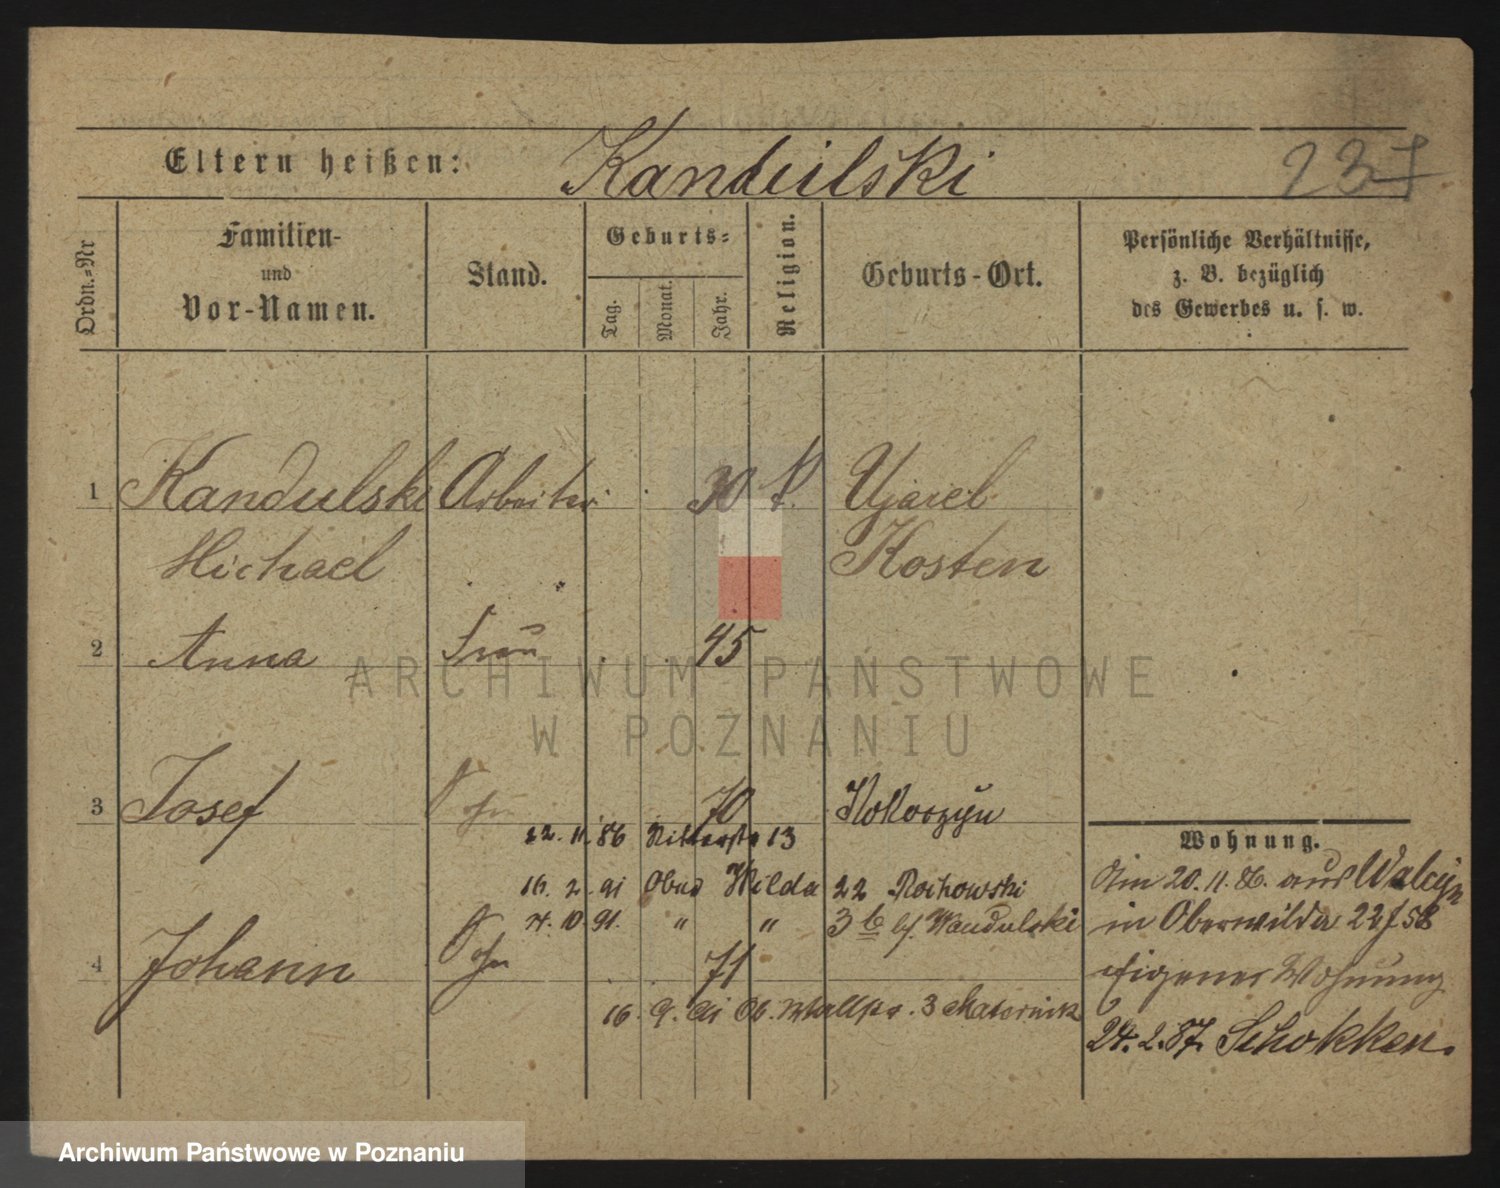 Eltern heißen: Kandulski 237
Ordn.=Nr
Familien-
und
Vor-Namen.
Stand.
Geburts=
Tag.
Monat.
Jahr.
Religion.
Geburts-Ort.
Persönliche Verhältnisse,
z. B. bezüglich
des Gewerbes u. s. w.
1 Kandulski Arbeiter 30 k. Ujazel
Michael Kosten
2 Anna Frau 45
ARCHIWUM PAŃSTWOWE
W POZNANIU
3 Josef Sohn 70 Kokorzyn
22. 11. 86 Ritterstr 13
16. 2. 91 Wilda 22 Rochowski
4. 10. 91. " " 3 b bf. Kandulski
4 Johann Sohn 71
16. 9. 91 Ob. 3
Wohnung.
Am 20. 11. 86. aus
in Oberwilda 22
Eigener Wohnung
24. 2. 87. Schokken.
Archiwum Państwowe w Poznaniu